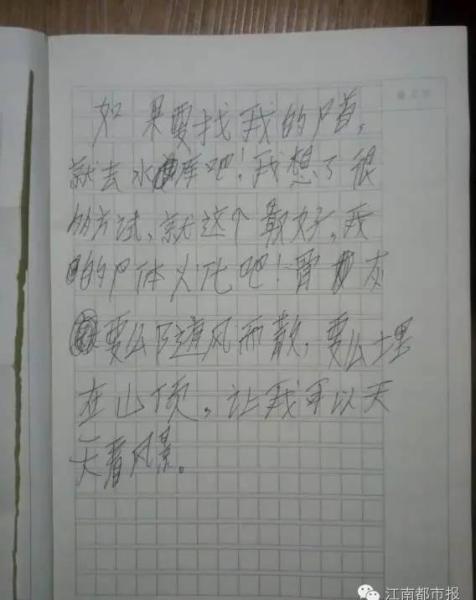 如果要找我的尸首，
就去水库吧！我想了很
方试、就这个最好，我
的尸体火化吧！骨灰
要么随风而散，要么埋
在山顶，让我可以天
天看风景。
江南都市报